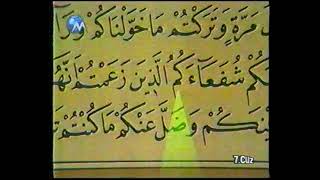 مَرَّةٍ وَتَرَكْتُمْ مَا خَوَّلْنَاكُمْ وَرَٓاءَ
شُفَعَٓاءَكُمُ الَّذ۪ينَ زَعَمْتُمْ اَنَّهُمْ
وَضَلَّ عَنْكُمْ مَا كُنْتُمْ
7.Cüz